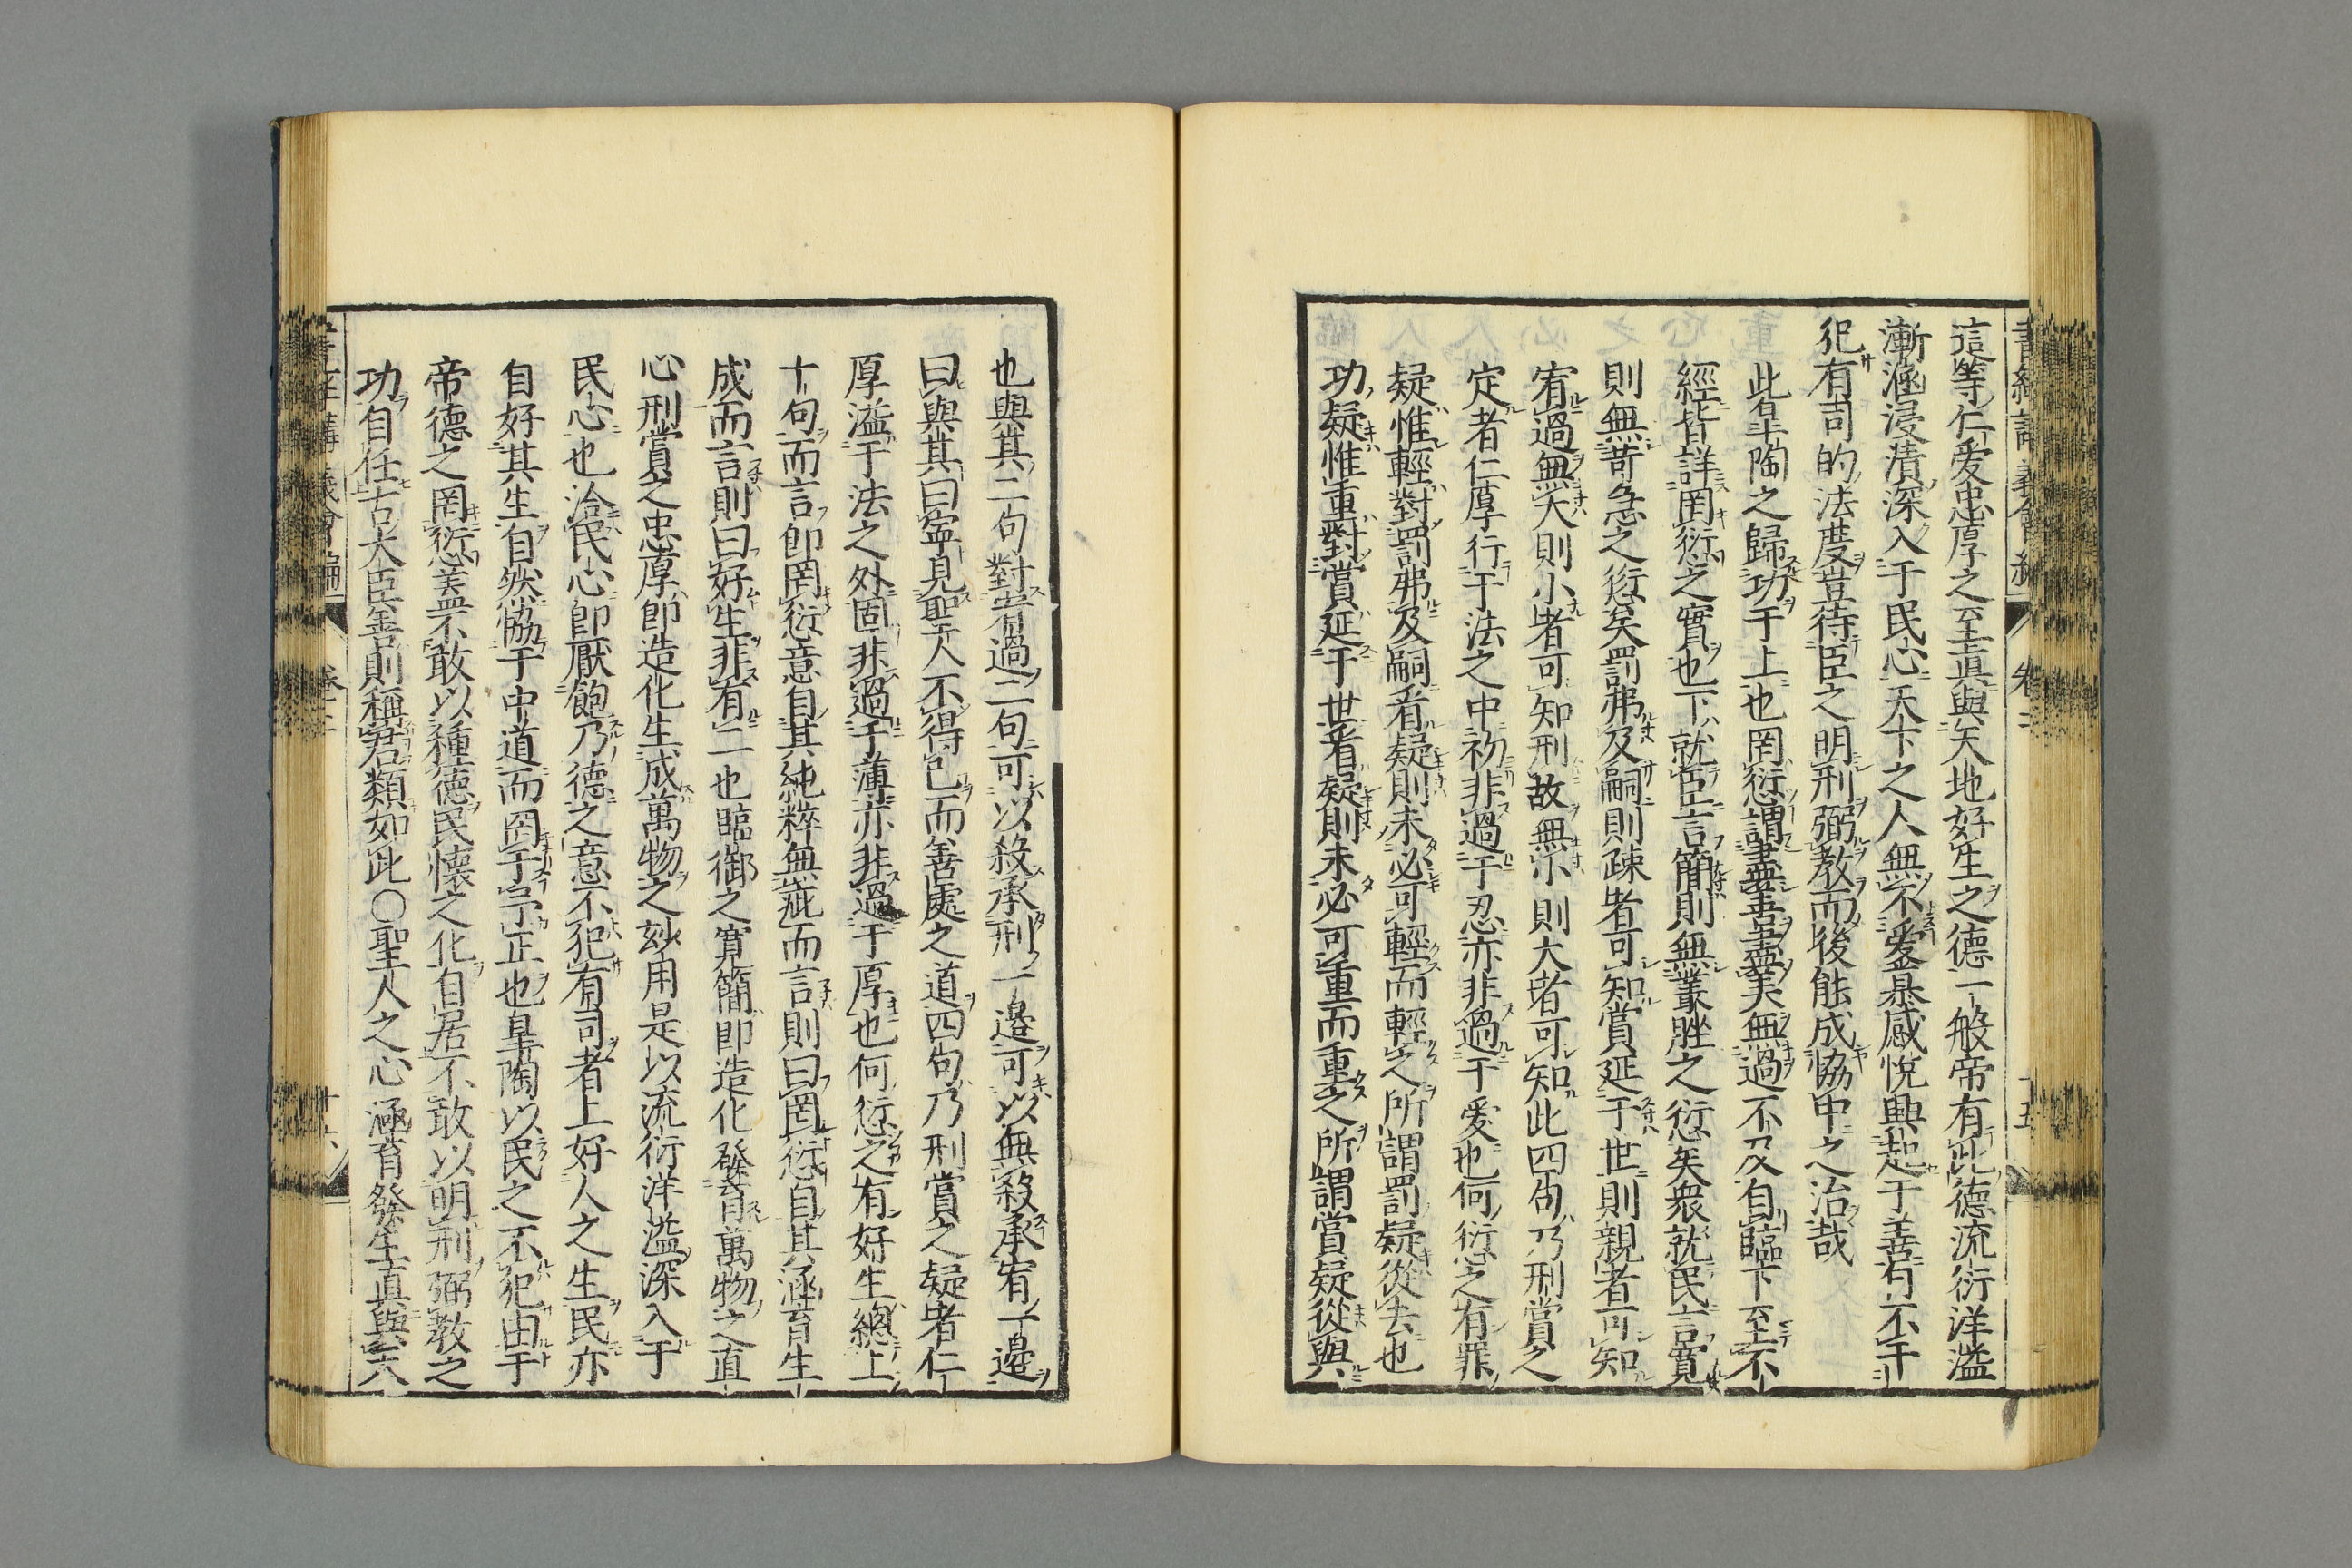 這等仁愛忠厚之至真與天地好生之德一般帝有此德流衍洋溢
漸涵浸漬深入于民心天下之人無不愛慕感悅興起于善有不干
犯有司的法度豈待臣之明刑弼教而後能成協中之治哉
此皐陶之歸功于上也罔愆謂盡善盡美無過不及自臨下至不
經皆詳罔愆之實也下就臣言簡則無叢脞之愆矣衆就民言寬
則無苛急之愆矣罰弗及嗣則疎者可知賞延于世則親者可知
宥過無大則小者可知刑故無小則大者可知此四句乃刑賞之
定者仁厚行于法之中初非過于忍亦非過于愛也何愆之有罪
疑惟輕對罰弗及嗣看疑則未必可輕而輕之所謂罰疑從去也
功疑惟重對賞延于世看疑則未必可重而重之所謂賞疑從與
也與其二句對宥過二句可以殺承刑一邊可以無殺承宥一邊
曰與其曰寧見聖人不得已而善處之道四句乃刑賞之疑者仁
厚溢于法之外固非過于薄亦非過于厚也何愆之有好生總上
十句而言即罔愆意自其純粹無疵而言則曰罔愆自其涵育生
成而言則曰好生非有二也臨御之寬簡即造化發育萬物之直
心刑賞之忠厚即造化生成萬物之妙用是以流衍洋溢深入于
民心也洽民心即厭飽乃德之意不犯有司者上好人之生民亦
自好其生自然協于中道而罔于予正也皐陶以民之不犯由于
帝德之罔愆盖不敢以種德民懷之化自居不敢以明刑弼教之
功自任古大臣善則稱君類如此〇聖人之心涵育發生直與六